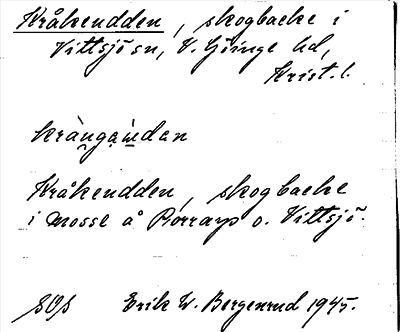 Kråkendden, skogbacke i
Vittsjö sn, V. Göinge hd,
Krist. l.
Kråkendden, skogbacke
i mosse å Rörrayp o. Vittsjö.
Erik W. Bergenrud 1945.